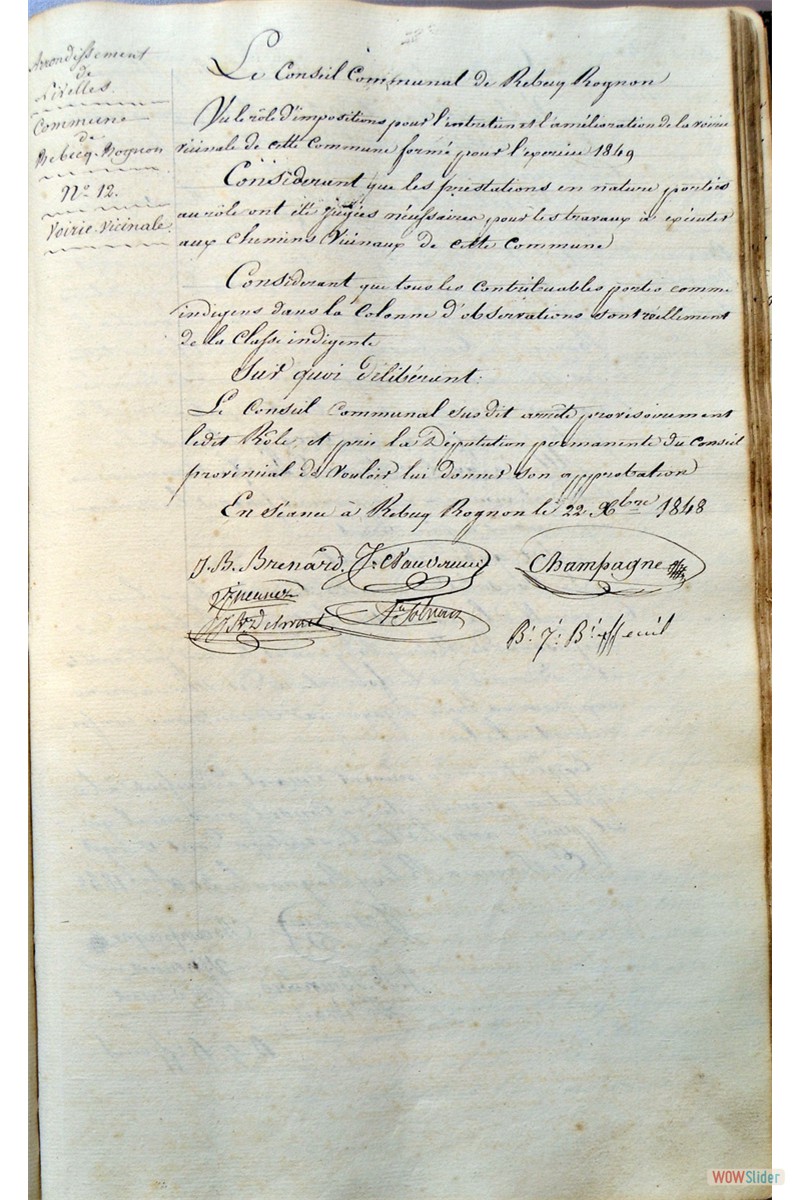 Arrondissement
de
Nivelles.
Commune
de
Rebecq-Rognon
N° 12.
Voirie Vicinale.
Le Conseil Communal de Rebecq Rognon
Vu le rôle d'impositions pour l'entretien et l'amélioration de la voirie
vicinale de cette Commune formé pour l'exercice 1849
Considerant que les prestations en nature portées
au rôle ont été jugées nécessaires pour les travaux à exécuter
aux chemins Vicinaux de cette Commune
Considerant que tous les contribuables portés comme
indigens dans la Colonne d'observations sont réellement
de la Classe indigente
Sur quoi délibérant:
Le Conseil Communal susdit arrête provisoirement
ledit Rôle, et prie la Députation permanente du Conseil
provincial de vouloir lui donner son approbation
En Séance à Rebecq Rognon le 22 Xbre 1848
J. B. Brenard.
Champagne
B. J. B.
WOWSlider